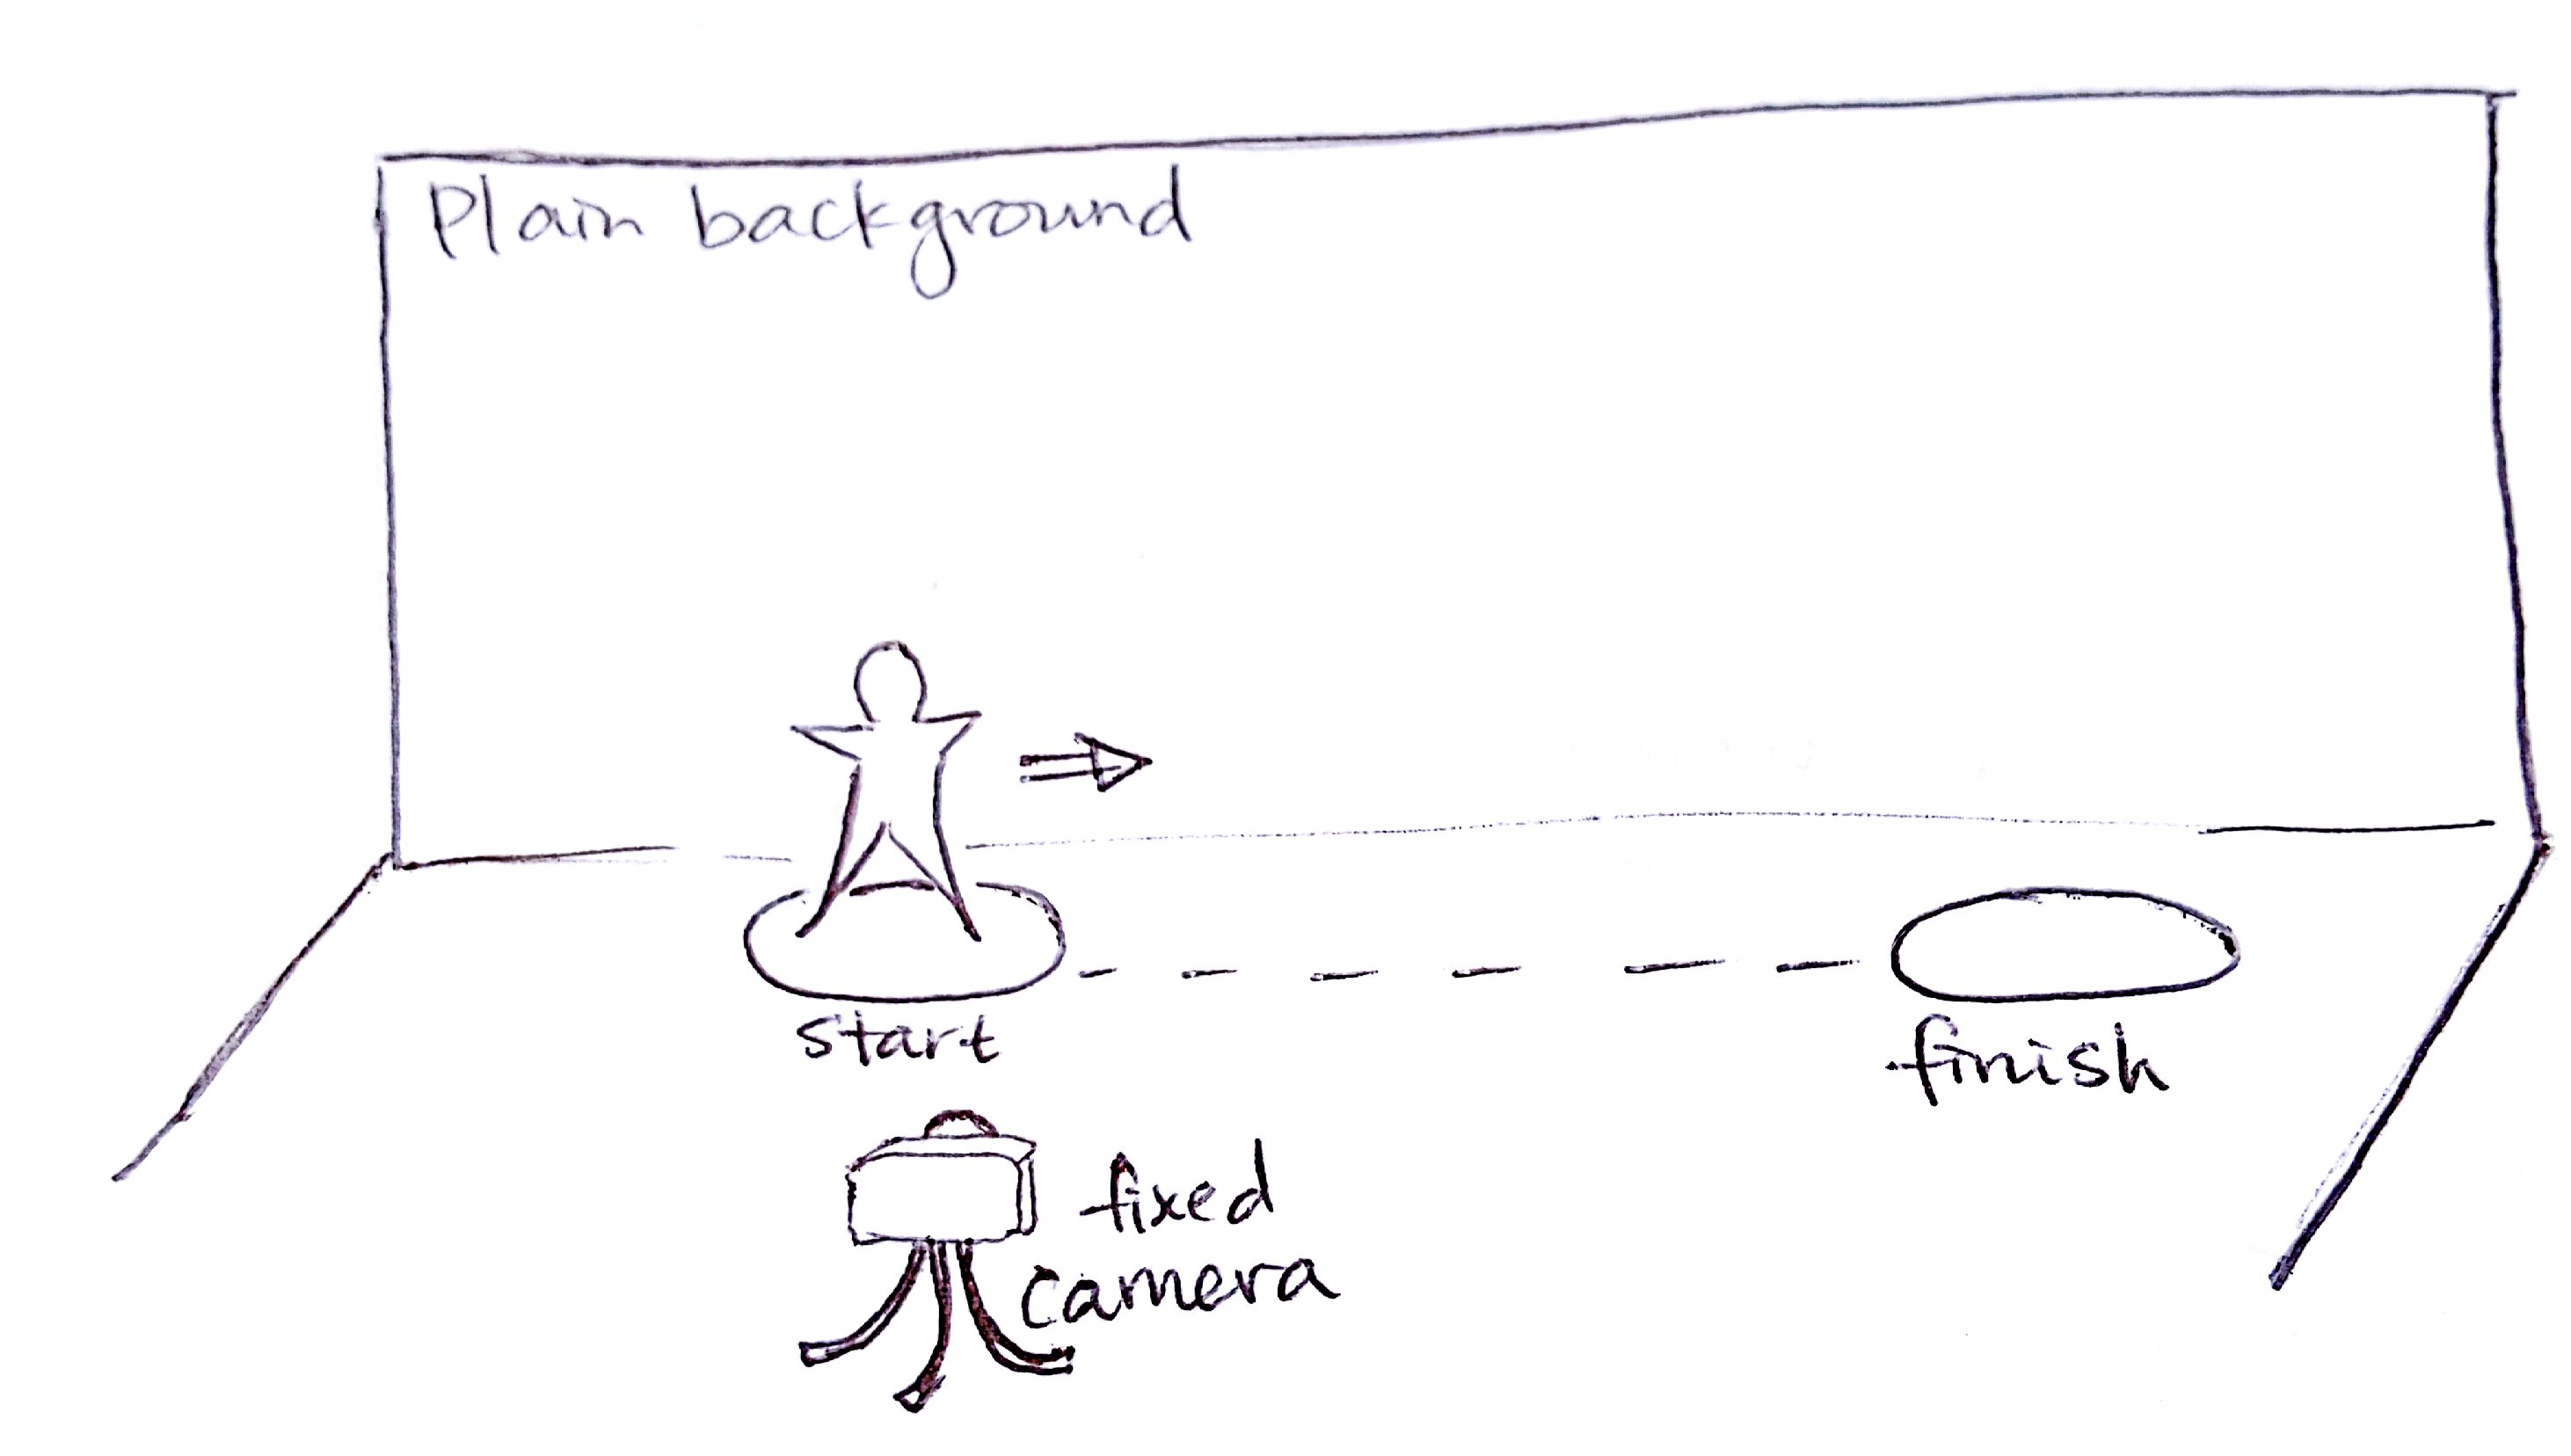 Plain background
start
finish
fixed
camera